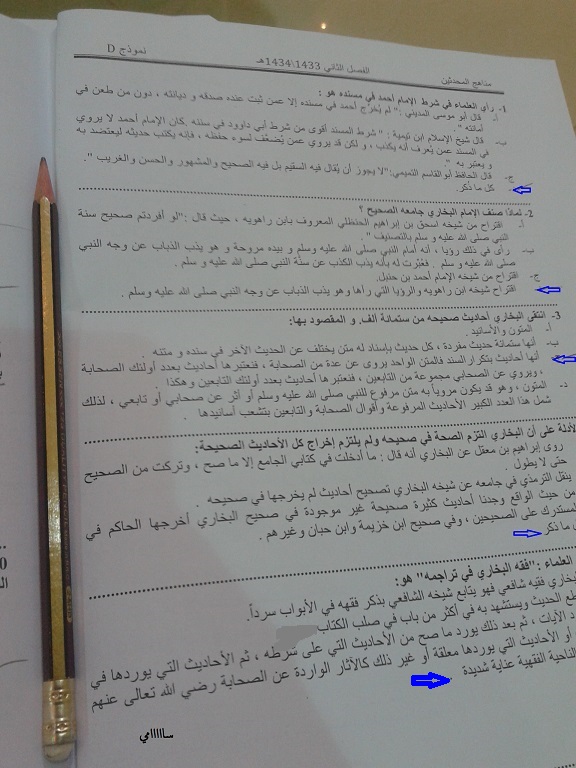 مناهج المحدثين الفصل الثاني 1433\1434هـ نموذج D
1- رأي العلماء في شرط الإمام أحمد في مسنده هو :
أ- قال أبو موسى المديني :" لم يُخرّج أحمد في مسنده إلا عمن ثبت عنده صدقه و ديانته ، دون من طعن في
أمانته ".
ب- قال شيخ الإسلام ابن تيمية : " شرط المسند أقوى من شرط أبي داوود في سننه .كان الإمام أحمد لا يروي
في المسند عمن يُعرف أنه يكذب ، و لكن قد يروي عمن يُضعّف لسوء حفظه ، فإنه يكتب حديثه ليعتضد به
و يعتبر به "
ج- قال الحافظ أبوالقاسم التميمي:"لا يجوز أن يُقال فيه السقيم بل فيه الصحيح والمشهور والحسن والغريب ".
كل ما ذكر.
2- لماذا صنف الإمام البخاري جامعه الصحيح ؟
أ- اقتراح من شيخه اسحق بن إبراهيم الحنظلي المعروف بابن راهويه ، حيث قال :"لو أفردتم صحيح سنة
النبي صلى الله عليه و سلم بالتصنيف" .
ب- رأى في ذلك رؤيا ، أنه أمام النبي صلى الله عليه وسلم و بيده مروحة و هو يذب الذباب عن وجه النبي
صلى الله عليه و سلم . فعُبّرت له بأنه يذب الكذب عن سنّة النبي صلى الله عليه و سلم .
ج- اقتراح من شيخه الإمام أحمد بن حنبل.
اقتراح شيخه ابن راهويه والرؤيا التي رآها وهو يذب الذباب عن وجه النبي صلى الله عليه وسلم .
3- انتقى البخاري أحاديث صحيحه من ستمانة ألف. و المقصود بها:
أ- المتون والأسانيد .
ب- أنها ستمائة حديث مفردة ، كل حديث بإسناد له متن يختلف عن الحديث الآخر في سنده و متنه .
أنها أحاديث بتكرار السند فالمتن الواحد يروى عن عدة من الصحابة ، فنعتبرها أحاديث بعدد أولئك الصحابة
، ويروي عن الصحابي مجموعة من التابعين ، فنعتبرها أحاديث بعدد أولئك التابعين وهكذا .
د- المتون ، وهو قد يكون مروياً به متن مرفوع للنبي صلى الله عليه وسلم أو أثر عن صحابي أو تابعي ، لذلك
شمل هذا العدد الكبير الأحاديث المرفوعة وأقوال الصحابة والتابعين بتشعب أسانيدها .
الأدلة على أن البخاري التزم الصحة في صحيحه ولم يلتزم إخراج كل الأحاديث الصحيحة:
روى إبراهيم بن معقل عن البخاري أنه قال : ما أدخلت في كتابي الجامع إلا ما صح ، وتركت من الصحيح
حتى لا يطول .
ينقل الترمذي في جامعه عن شيخه البخاري تصحيح أحاديث لم يخرجها في صحيحه .
من حيث الواقع وجدنا أحاديث كثيرة صحيحة غير موجودة في صحيح البخاري أخرجها الحاكم في
المستدرك على الصحيحين ، وفي صحيح ابن خزيمة وابن حبان وغيرهم .
ما ذكر
العلماء :"فقه البخاري في تراجمه" هو:
البخاري فقيه شافعي فهو يتابع شيخه الشافعي بذكر فقهه في الأبواب سرداً.
الحديث ويستشهد به في أكثر من باب في صلب الكتاب
الآيات ، ثم بعد ذلك يورد ما صح من الأحاديث التي على شرطه ، ثم الأحاديث التي يوردها في
أو الأحاديث التي يوردها معلقة أو غير ذلك كالآثار الواردة عن الصحابة رضي الله تعالى عنهم
الناحية الفقهية عناية شديدة
ســاااامي